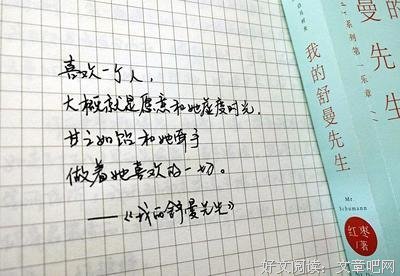 喜欢一个人，
大概就是愿意和她虚度时光，
甘之如饴和她牵手
做着她喜欢的一切。
——《我的舒曼先生》
系列第一乐章
的
曼
先生
我的舒曼先生
Mr.
Schumann
红枣
著
好文阅读：文章吧网